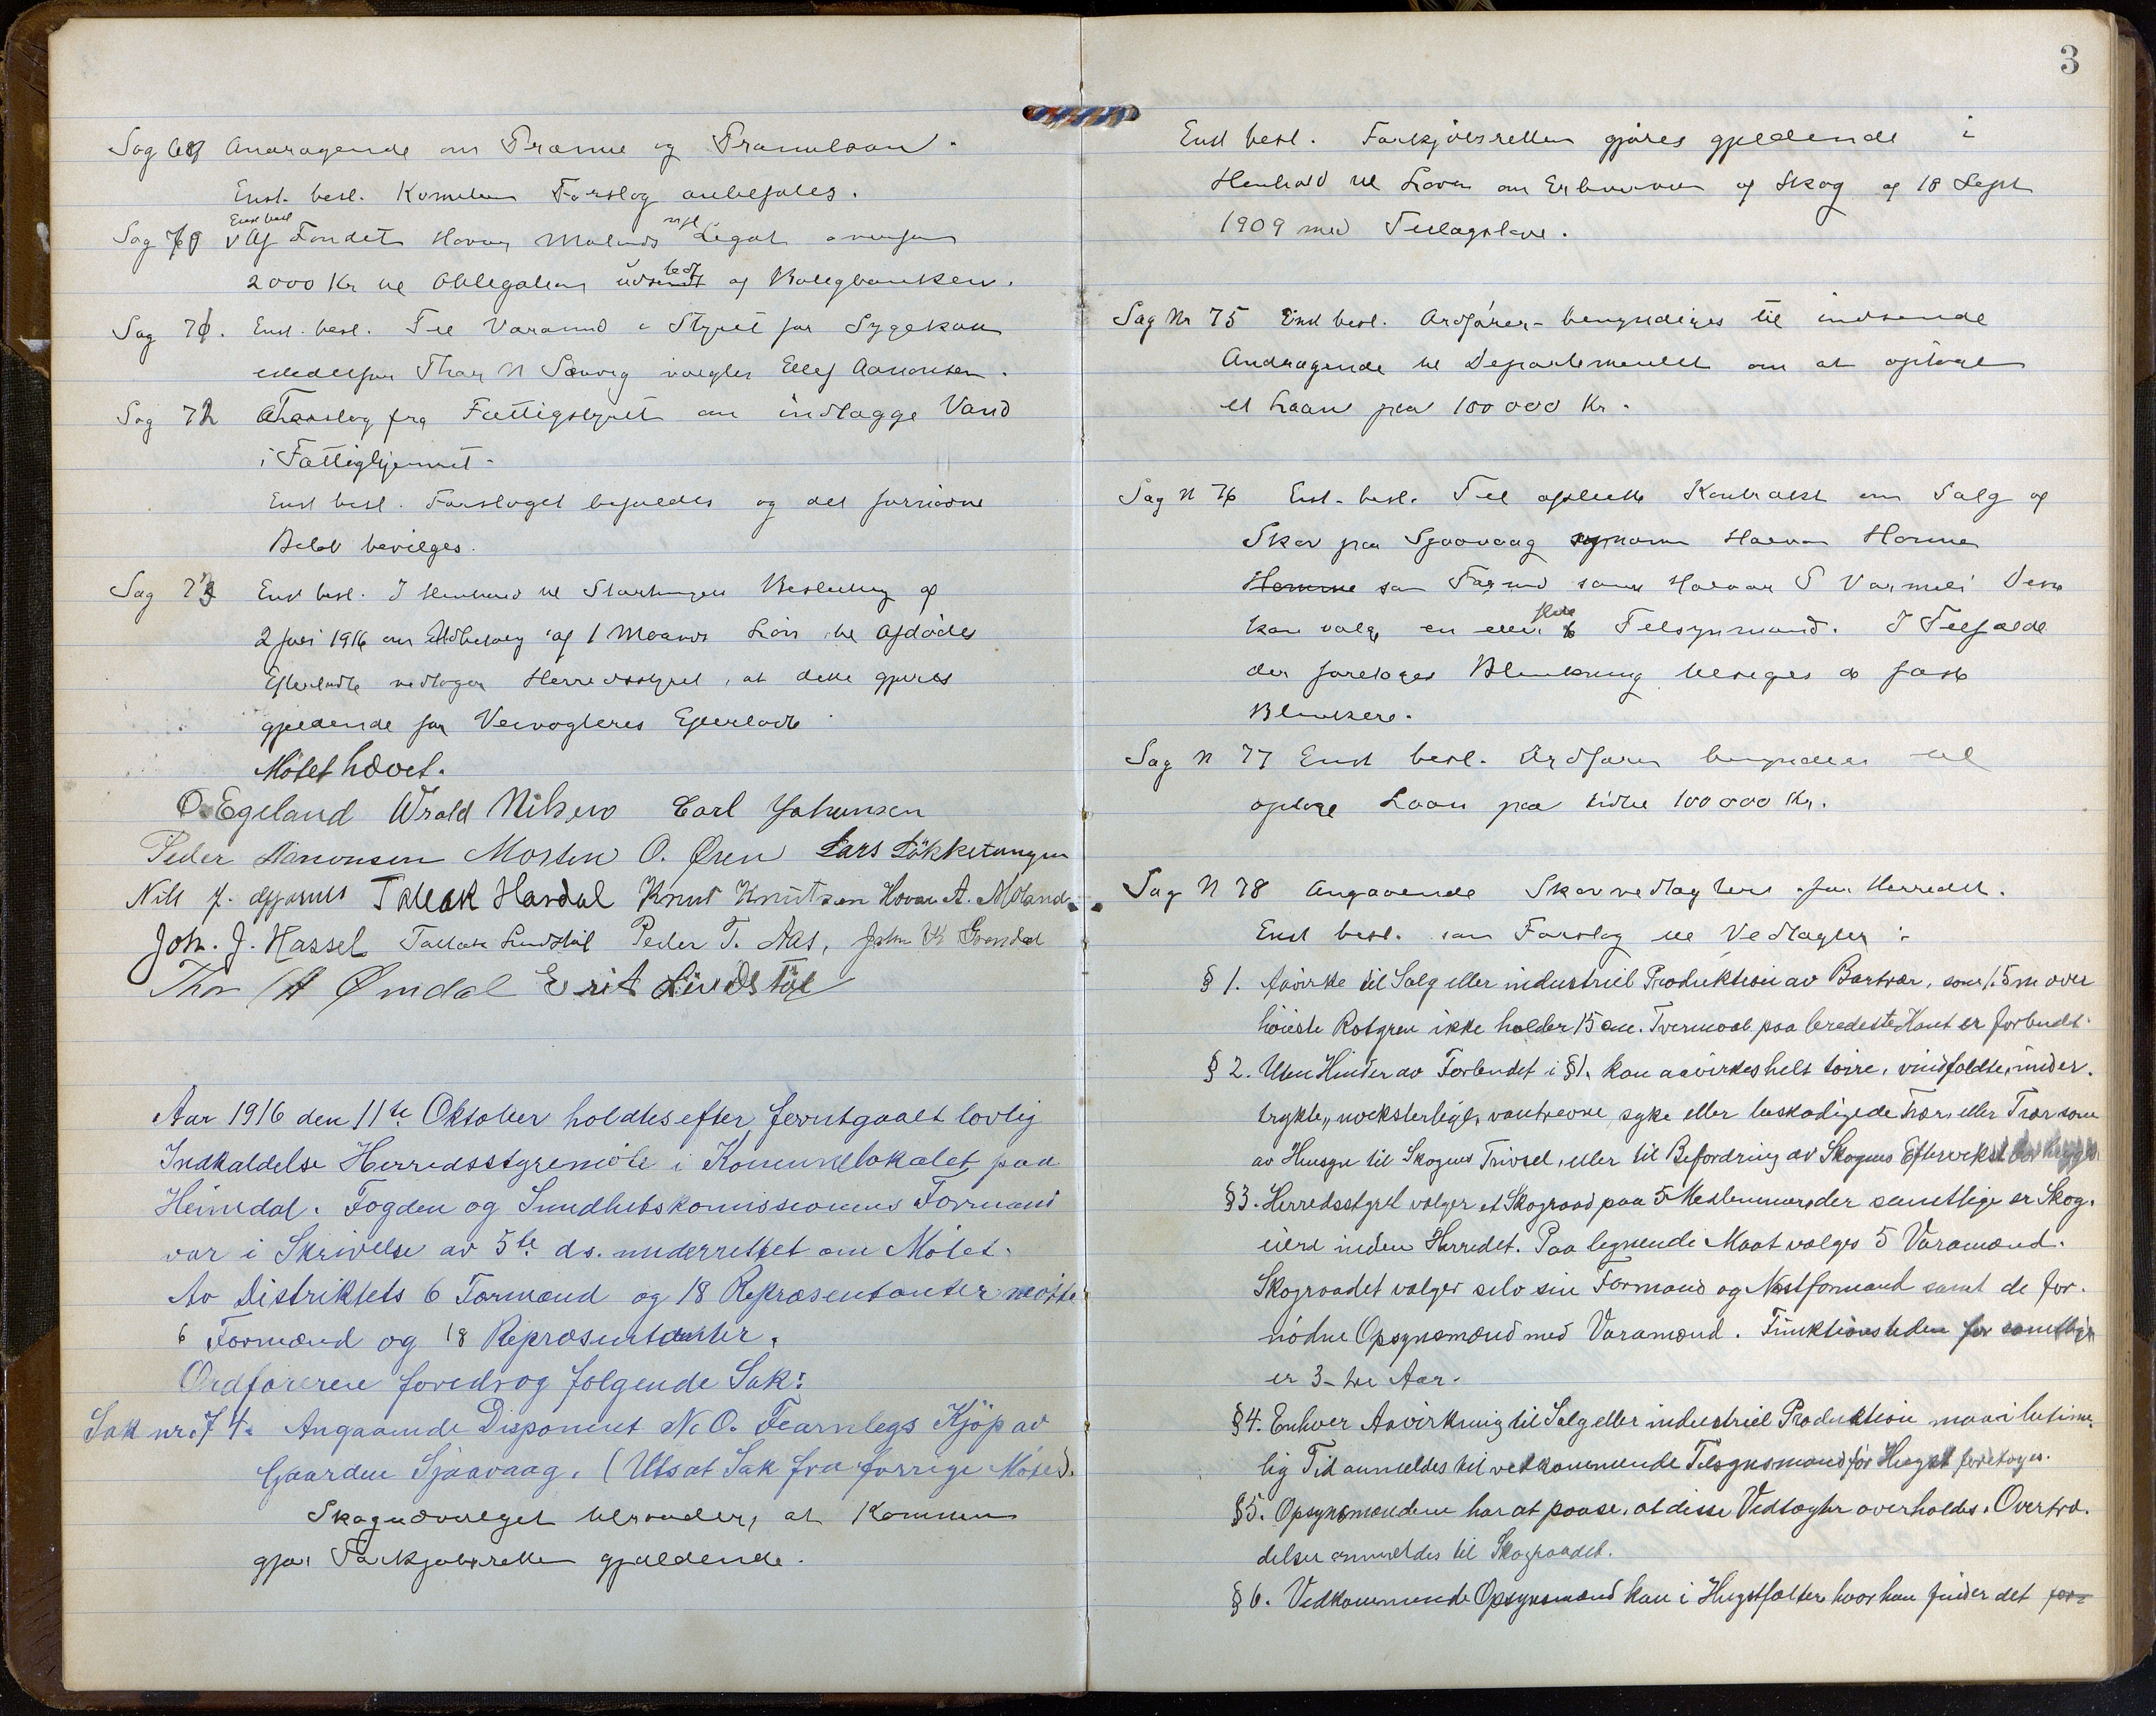 Sag 69 Andragende om Præmie og Præmielaan.
Enst. besl. Komiteens Forslag anbefales.
Enst besl
Sag 70 Af Fondet Hovar Molands Legat
2000 Kr til Obligation af Boligbanken.
Sag 71. Enst. besl. Til Varamd i Styret for Sygekassen
istedetfor Thor N Songvig vælges Ellef Aanonsen.
Sag 72 Forslag fra Fattigstyret om indlægge Vand
i Fattighjemmet.
Enst besl. Forslaget bifaldes og det fornødne
Beløb bevilges.
Sag 73 Enst besl. I Henhold til Stortingets Beslutning af
2 Juni 1916 om Udbetaling af 1 Maaneds Løn til Afdødes
Efterladte vedtager Herredsstyret, at dette gjøres
gjeldende for Veivogteres Efterladte
Møtet hævet.
O. Egeland Wrold Nilsen Carl Johansen
Peder Aanonsen Morten O. Øren Lars Løkketangen
Nils J. Tallak Hardal Knut Knutsen Hovar A. Moland
Joh. J. Hassel Tallak Lindstøl Peder T. Næs, John
Thor A Ømdal Erik Lindstøl
Aar 1916 den 11te Oktober holdtes efter forutgaat lovlig
Indkaldelse Herredsstyremøte i Kommunelokalet paa
Heimdal. Fogden og Sundhetskomissionens Formand
var i Skrivelse av 5te ds. underrettet om Møtet.
Av Distriktets 6 Formænd og 18 Repræsentanter møtte
6 Formænd og 18 Repræsentanter.
Ordføreren foredrog følgende Sak:
Sak nr. 74. Angaaende Disponent N. O. Fearnleys Kjøp av
Gaarden Sjaavaag. (Utsat Sak fra forrige Møte).
Skogudvalget tilraader, at Kommunen
gjør Forkjøbsretten gjældende.
3
Enst besl. Forkjøbsretten gjøres gjeldende i
Henhold til Loven om Erhvervelse af Skog af 18 Sept
1909 med Tillægslove.
Sag Nr 75 Enst besl. Ordfører bemyndiges til indsende
Andragende til Departementet om at optage
et Laan paa 100 000 Kr.
Sag N 76 Enst. besl. Til oprette Kontrakt om Salg af
Skov paa Sjaavaag Halvor Homme
Homme som Formd samt Halvor S Varmeli Disse
kan vælge en eller flere Tilsynsmænd. I Tilfælde
der foretages Blinkning de faste
Blinkere.
Sag N 77 Enst besl. Ordfører bemyndiges til
optage Laan paa 100 000 Kr.
Sag N 78 Angaaende Skovvedtægter for Herredet.
Enst besl. som Forslag til Vedtægter:
§ 1. Avirke til Salg eller industriel Produktion av Bartrær, som 1.5m over
høieste Rotgren ikke holder 15 cm. Tvermaal paa bredeste Kant er forbudt.
§ 2. Uten Hinder av Forbudet i §1. kan avvirkes helt tørre, vindfældte, under-
trykte, vantrevne, syke eller beskadigede Trær, eller Trær som
av Hensyn til Skogens Trivsel, eller til Befordring av Skogens Eftervekst bør hugges
§3. Herredsstyret vælger et Skograad paa 5 Medlemmer, der samtlige er Skog-
eiere inden Herredet. Paa lignende Maate vælges 5 Varamænd.
Skograadet vælger selv sin Formand og Næstformand samt de for-
nødne Opsynsmænd med Varamænd. Funktionstiden for samtlige
er 3 - tre Aar.
§4. Enhver Avvirkning til Salg eller industriel Produktion maa i betime-
lig Tid anmeldes til vedkommende Tilsynsmand før Hugst foretages.
§5. Opsynsmændene har at paase, at disse Vedtægter overholdes. Overtræ-
delser anmeldes til Skograadet.
§ 6. Vedkommende Opsynsmænd kan i Hugstfælter hvor han finder det for-